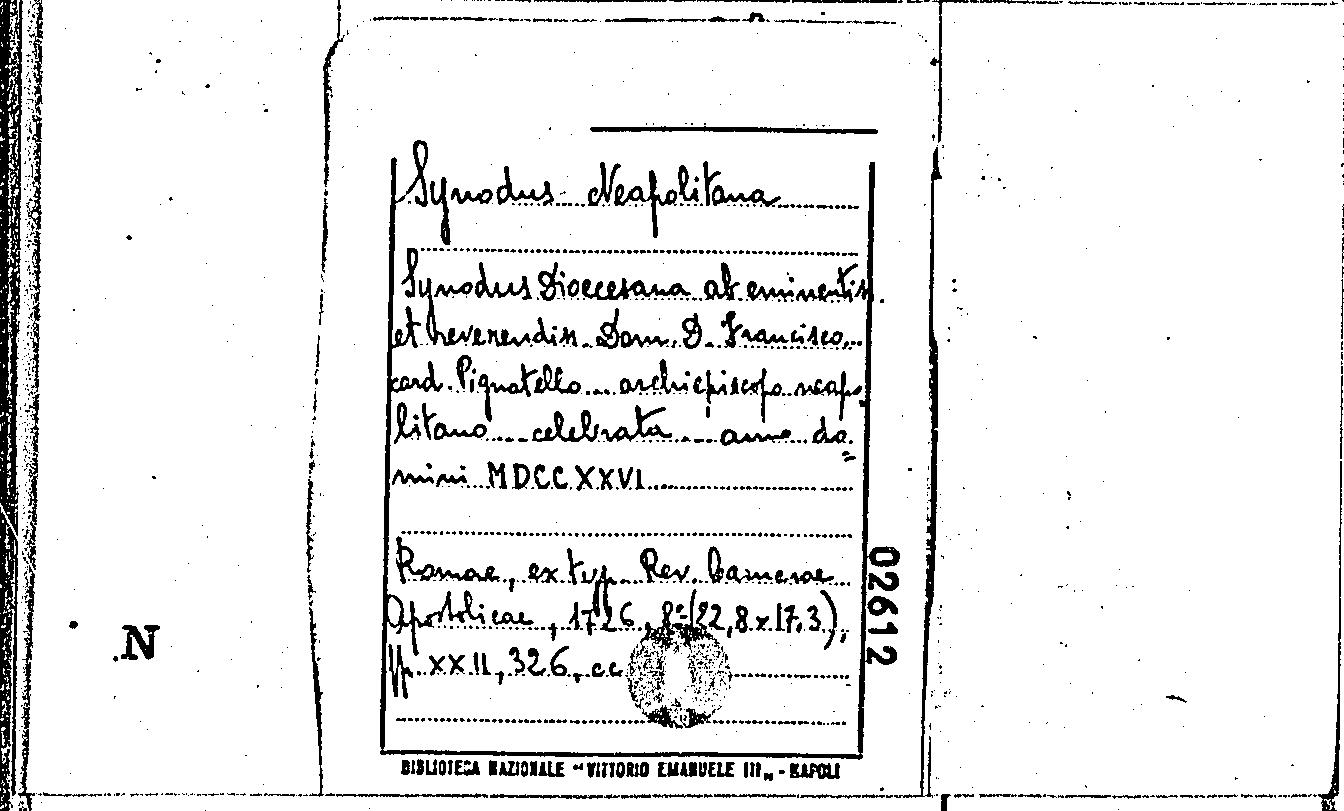 Synodus Neapolitana
Synodus Dioecesana ab eminentiss.
et reverendiss. Dom. D. Francisco...
card. Pignatello... archiepiscopo neapo
litano... celebrata... anno do=
mini MDCCXXVI...
Romae, ex typ. Rev. Camerae
Apostolicae, 1726, 8º (22,8 x 17,3),
pp. XXII, 326, cc
02612
N
BIBLIOTECA NAZIONALE "VITTORIO EMANUELE III" - NAPOLI